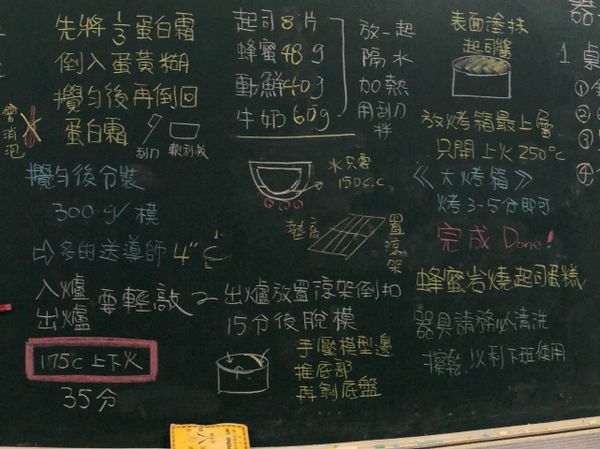 先將1/3蛋白霜
倒入蛋黃糊
攪勻後再倒回
蛋白霜
會消泡
刮刀
軟刮板
攪勻後分裝
300g/模
⇨多的送導師 4"
入爐
出爐
要輕敲
175℃上下火
35分
起司8片
蜂蜜48g
動鮮40g
牛奶60g
放一起
隔水
加熱
用刮刀
拌
水只需
150c.c
墊高
置涼架
出爐放置涼架倒扣
15分後脫模
手壓模型邊
推底部
再剝底盤
表面塗抹
起司醬
放烤箱最上層
只開上火250℃
《大烤箱》
烤3-5分即可
完成 Done!
蜂蜜岩燒起司蛋糕
器具請務必清洗
擦乾,以利下班使用
器
1桌